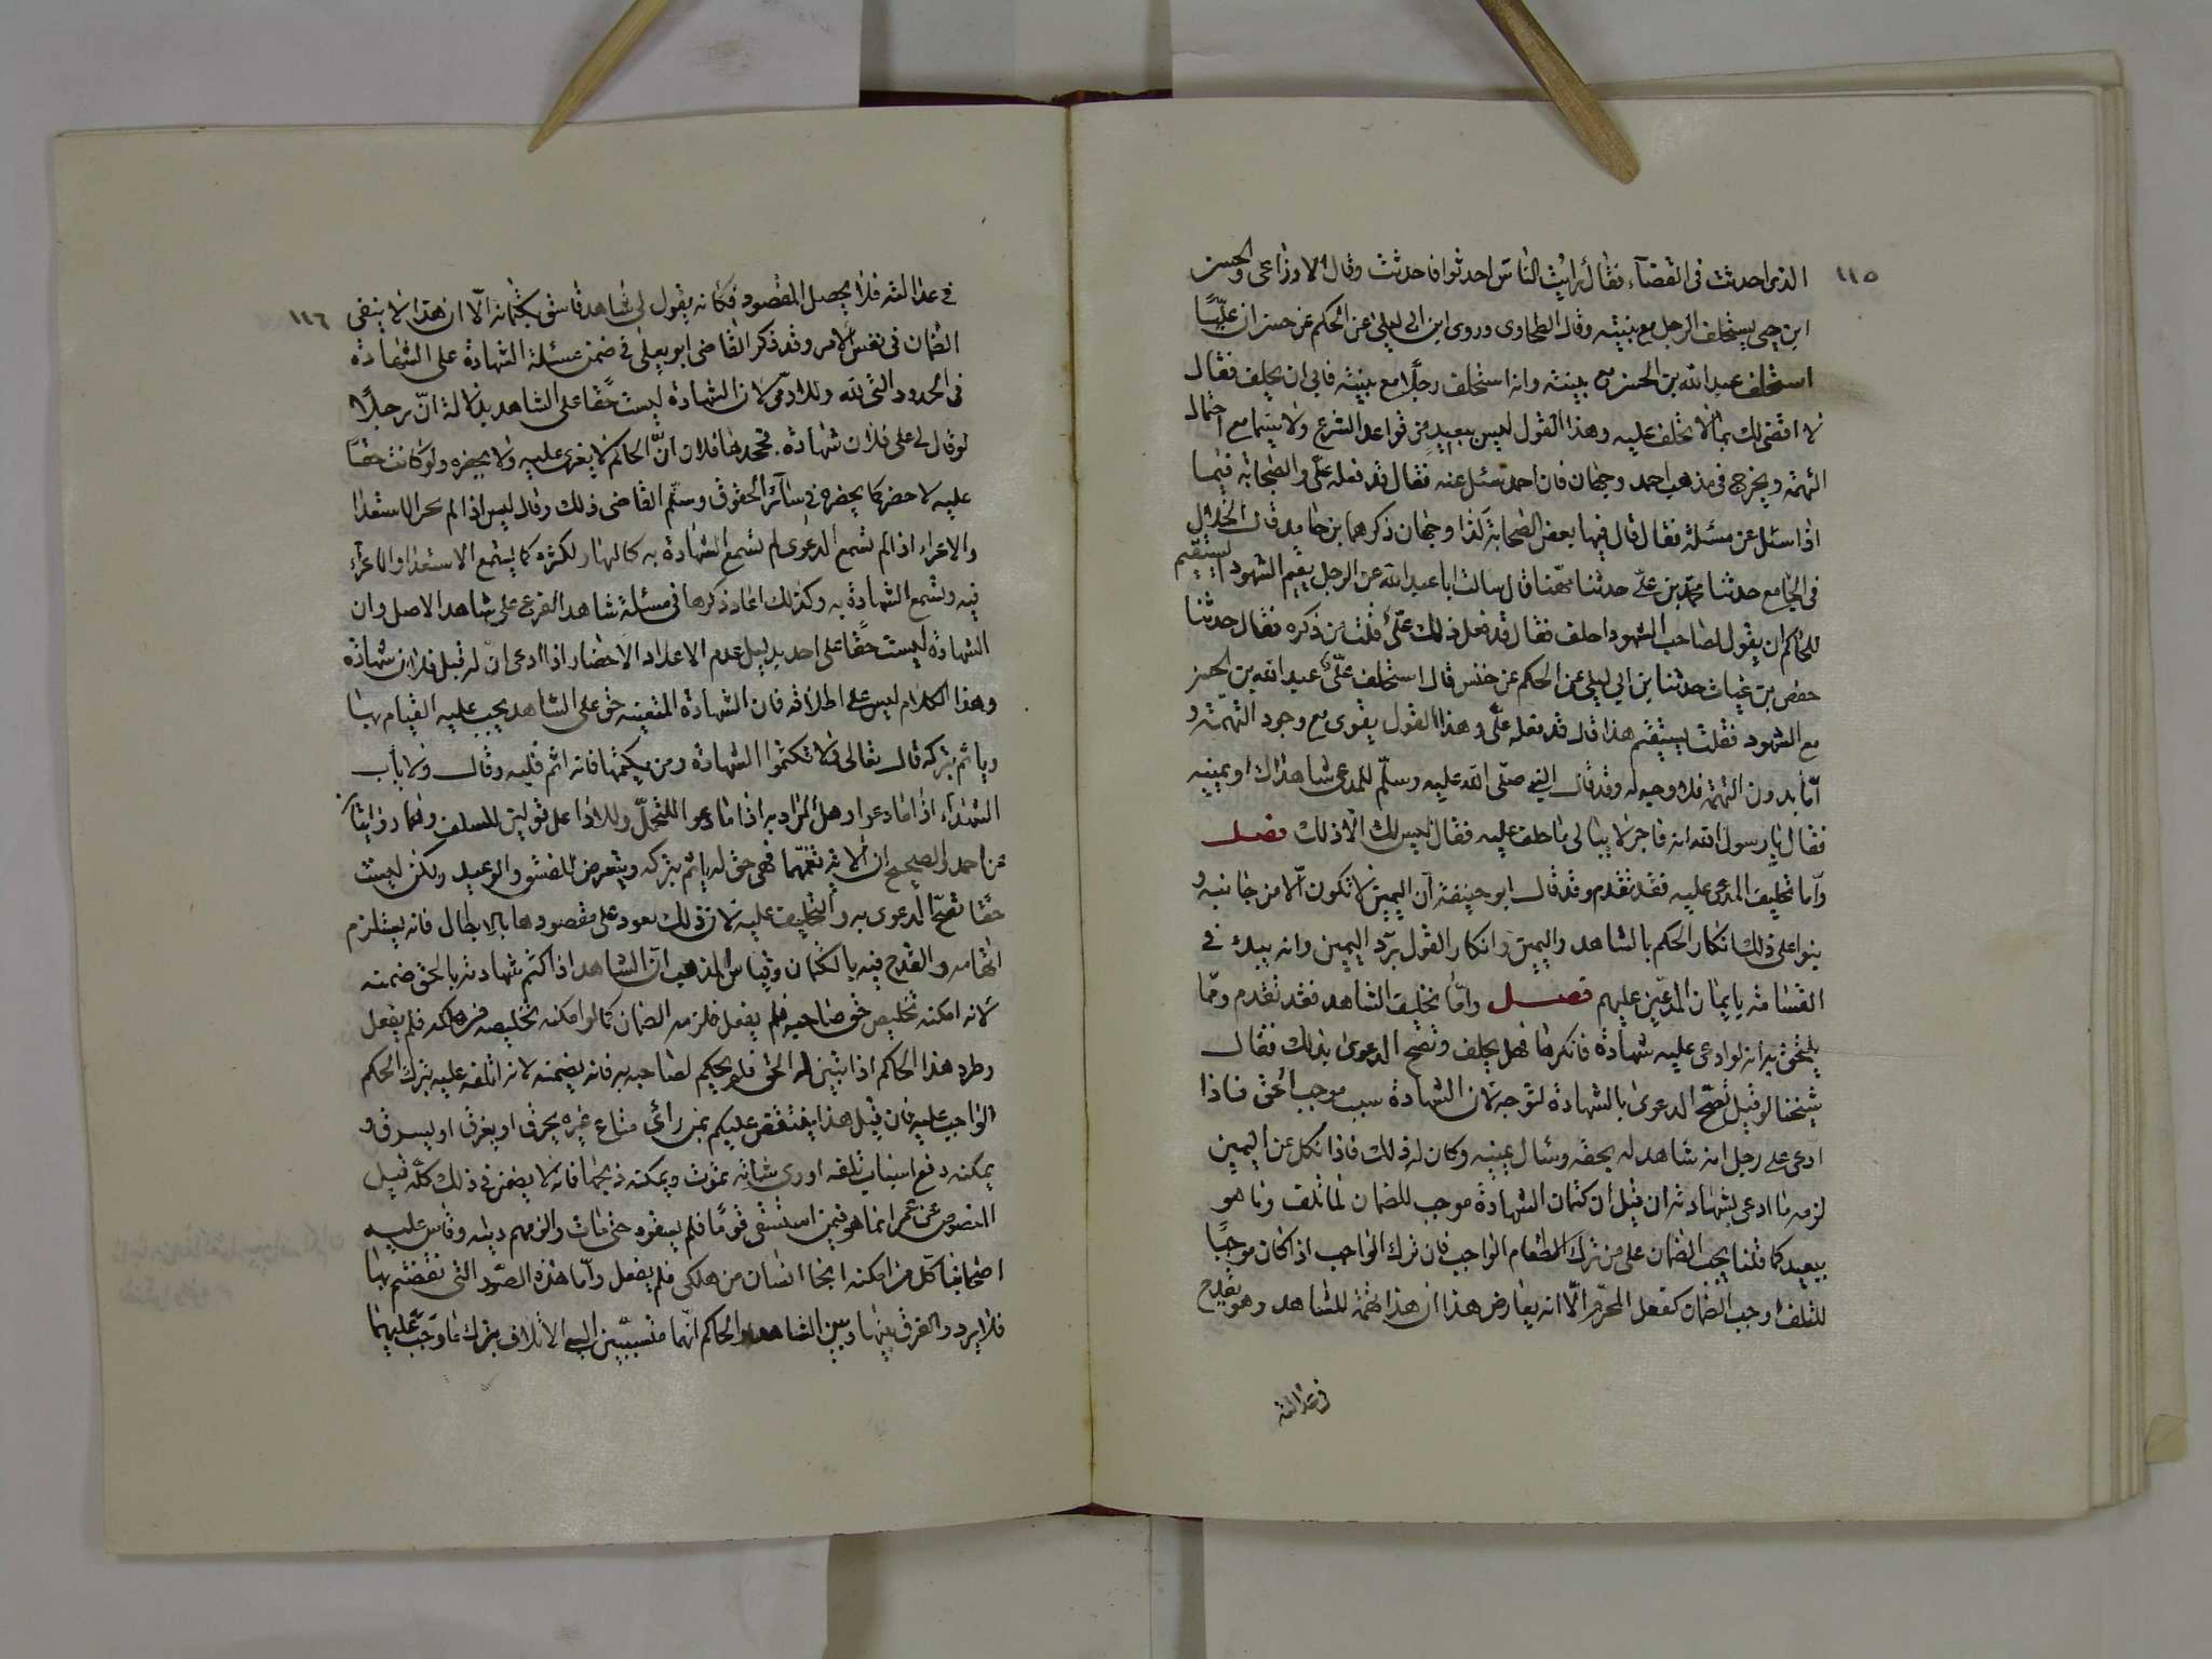 ١١٥
الذى احدثت فى القضآء فقال رايت الناس احدثوا فاحدثت وقال الاوزاعى والحسن
ابن حى يستحلف الرجل مع بينته وقال الطحاوى وروى ابن ابى ليلى عن الحكم عن حنش ان عليًّا
استحلف عبد الله بن الحسن مع بينته وانه استحلف رجلًا مع بينته فابى ان يحلف فقال
لا اقضى لك بما لا تحلف عليه وهذا القول ليس ببعيدٍ من قواعد الشرع ولا سيما مع احتمال
التهمة ويخرج فى مذهب احمد وجهان فان احمد سئل عنه فقال قد فعله علىّ والصحابة فيما
اذا سئل عن مسئلة فقال قال فيها بعض الصحابة كذا وجهان ذكرهما بن حامد قال الخلال
فى الجامع حدثنا محمد بن علىّ حدثنا مهنا قال سالت ابا عبد الله عن الرجل يقيم الشهود ايستقيم
للحاكم ان يقول لصاحب الشهود احلف فقال قد فعل ذلك علىّ قلت من ذكره فقال حدثنا
حفص بن غياث حدثنا بن ابى ليلى عن الحكم عن حنش قال استحلف علىّ عبد الله بن الحسن
مع الشهود فقلت يستقيم هذا قال قد فعله علىّ وهذا القول يقوى مع وجود التهمة و
امّا بدون التهمة فلا وجه له وقد قال النبى صلى الله عليه وسلّم للمدعى شاهداك او يمينه
فقال يا رسول الله انه فاجر لا يبالى ما حلف عليه فقال ليس لك الّا ذلك فصل
وامّا تحليف المدعى عليه فقد تقدم وقد قال ابو حنيفة ان اليمين لا تكون الّا من جانبه و
بنوا على ذلك انكار الحكم بالشاهد واليمين وانكار القول برد اليمين وانه يبدأ فى
القسامة بايمان المدّعىن عليهم فصل وامّا تحليف الشاهد فقد تقدم وممّا
يلتحق به انه لو ادعى عليه شهادة فانكرها فهل يحلف وتصح الدعوى بذلك فقال
شيخنا لو قيل تصحّ الدعوى بالشهادة لتوجه لان الشهادة سبب موجب للحق فاذا
ادعى على رجل انه شاهد له بحقه وسال يمينه وكان له ذلك فاذا نكل عن اليمين
لزمه ما ادعى بشهادته ان قيل ان كتمان الشهادة موجب للضمان لما تلف وما هو
ببعيد كما قلنا يجب الضمان على من ترك الطعام الواجب فان ترك الواجب اذا كان موجبًا
للتلف اوجب الضمان كفعل المحرّم الّا انه يعارض هذا ان هذا تهمة للشاهد وهو يقدح
فى عدالته
١١٦
فى عدالته فلا يحصل المقصود فكانه يقول لى شاهد فاسق بكتمانه الّا ان هذا لا ينفى
الضمان فى نفس الامر وقد ذكر القاضى ابو يعلى فى ضمن مسئلة الشهادة على الشهادة
فى الحدود التى لله وللآدمى لان الشهادة ليست حقًّا على الشاهد بدلالة انّ رجلًا
لو قال لى على فلان شهادة فجحدها فلان انّ الحاكم لا يعدى عليه ولا يحضره ولو كانت حقًّا
عليه لاحضره كما يحضره فى سائر الحقوق وسلّم القاضى ذلك وقال ليس اذا لم الاستعدا
والاعداء اذا لم تسمع الدعوى لم تسمع الشهادة به
فيه وتسمع الشهادة به وكذلك اعاد ذكرها فى مسئلة شاهد الفرع على شاهد الاصل وان
الشهادة ليست حقًّا على احد بدليل عدم الاعداء الاحضار اذا ادعى ان له قبل فلان شهادة
وهذا الكلام ليس على اطلاقه فان الشهادة المتعينه حق على الشاهد يجب عليه القيام بها
وياثم بتركه قال تعالى ولا تكتموا الشهادة ومن يكتمها فانه اثم قلبه وقال ولا ياب
الشهدآء اذا ما دعوا وهل المراد به اذا ما دعوا للتحمّل وللاداء على قولين للسلف وهما روايتان
عن احمد والصحيح ان الاية تعمّهما فهى حق له ياثم بتركه ويتعرض للفسق والوعيد ولكن ليست
حقًّا تصحّ الدعوى به والتحليف عليه لان ذلك يعود على مقصودها بالابطال فانه يستلزم
اتهامه والقدح فيه بالكتمان وقياس المذهب ان الشاهد اذا كتم شهادته بالحق ضمنه
لانه امكنه تخليص حق صاحبه فلم يفعل فلزمه الضمان كما لو امكنه تخليصه من هلكه فلم يفعل
وطرد هذا الحاكم اذا تبين له الحق فلم يحكم لصاحبه به فانه يضمنه لانه اتلفه عليه بترك الحكم
الواجب عليه فان قيل هذا ينتقض عليكم بمن رائى متاع غيره يحرق او يغرق او يسرق و
يمكنه دفع اسباب تلفه او رى شاته تموت ويمكنه ذبحها فانه لا يضمن فى ذلك كله قيل
المنصوص عن عمر انما هو فيمن استسقى قومًا فلم يسقوه حتى مات والزمهم ديته وقاس عليه
اصحابنا كل من امكنه انجا انسان من هلكى فلم يفعل وامّا هذه الصّور التى نقضتم بها
فلا يرد والفرق بينها وبين الشاهد والحاكم انّهما متسبّبين الى الاتلاف بترك ما وجب عليهما